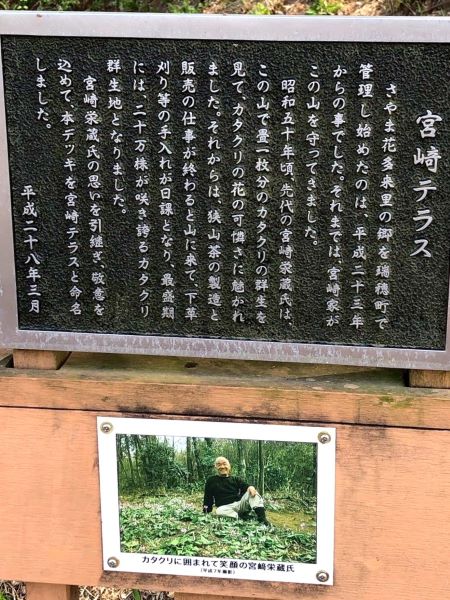 宮崎テラス
さやま花多来里の郷を瑞穂町で
管理し始めたのは、平成二十三年
からの事でした。それまでは、宮崎家が
この山を守ってきました。
昭和五十年頃、先代の宮崎栄蔵氏は、
この山で畳一枚分のカタクリの群生を
見て、カタクリの花の可憐さに魅かれ
ました。それからは、狭山茶の製造と
販売の仕事が終わると山に来て、下草
刈り等の手入れが日課となり、最盛期
には、二十万株が咲き誇るカタクリ
群生地となりました。
宮崎栄蔵氏の思いを引継ぎ、敬意を
込めて、本デッキを宮崎テラスと命名
しました。
平成二十八年三月
カタクリに囲まれて笑顔の宮崎栄蔵氏
(平成7年撮影)